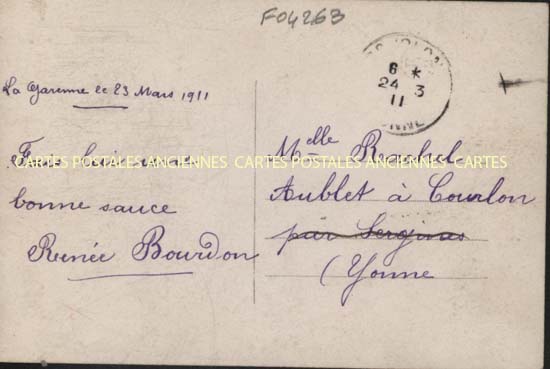 F04263
6 *
24 - 3
11
La Garenne le 23 Mars 1911
bonne sauce
Renée Bourdon
CARTES POSTALES ANCIENNES CARTES POSTALES ANCIENNES CARTES
Melle Rachel
Aublet à Courlon
par Sergines
(Yonne